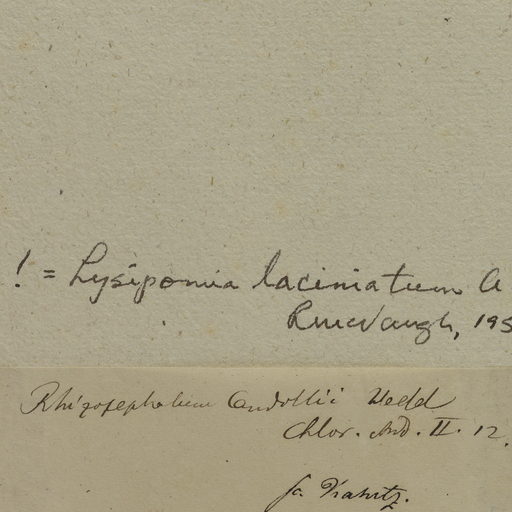 ! = Lysipomia laciniatum A
R McVaugh, 195
Rhizocephalum Candollii Wedd
Chlor. And. II. 12.